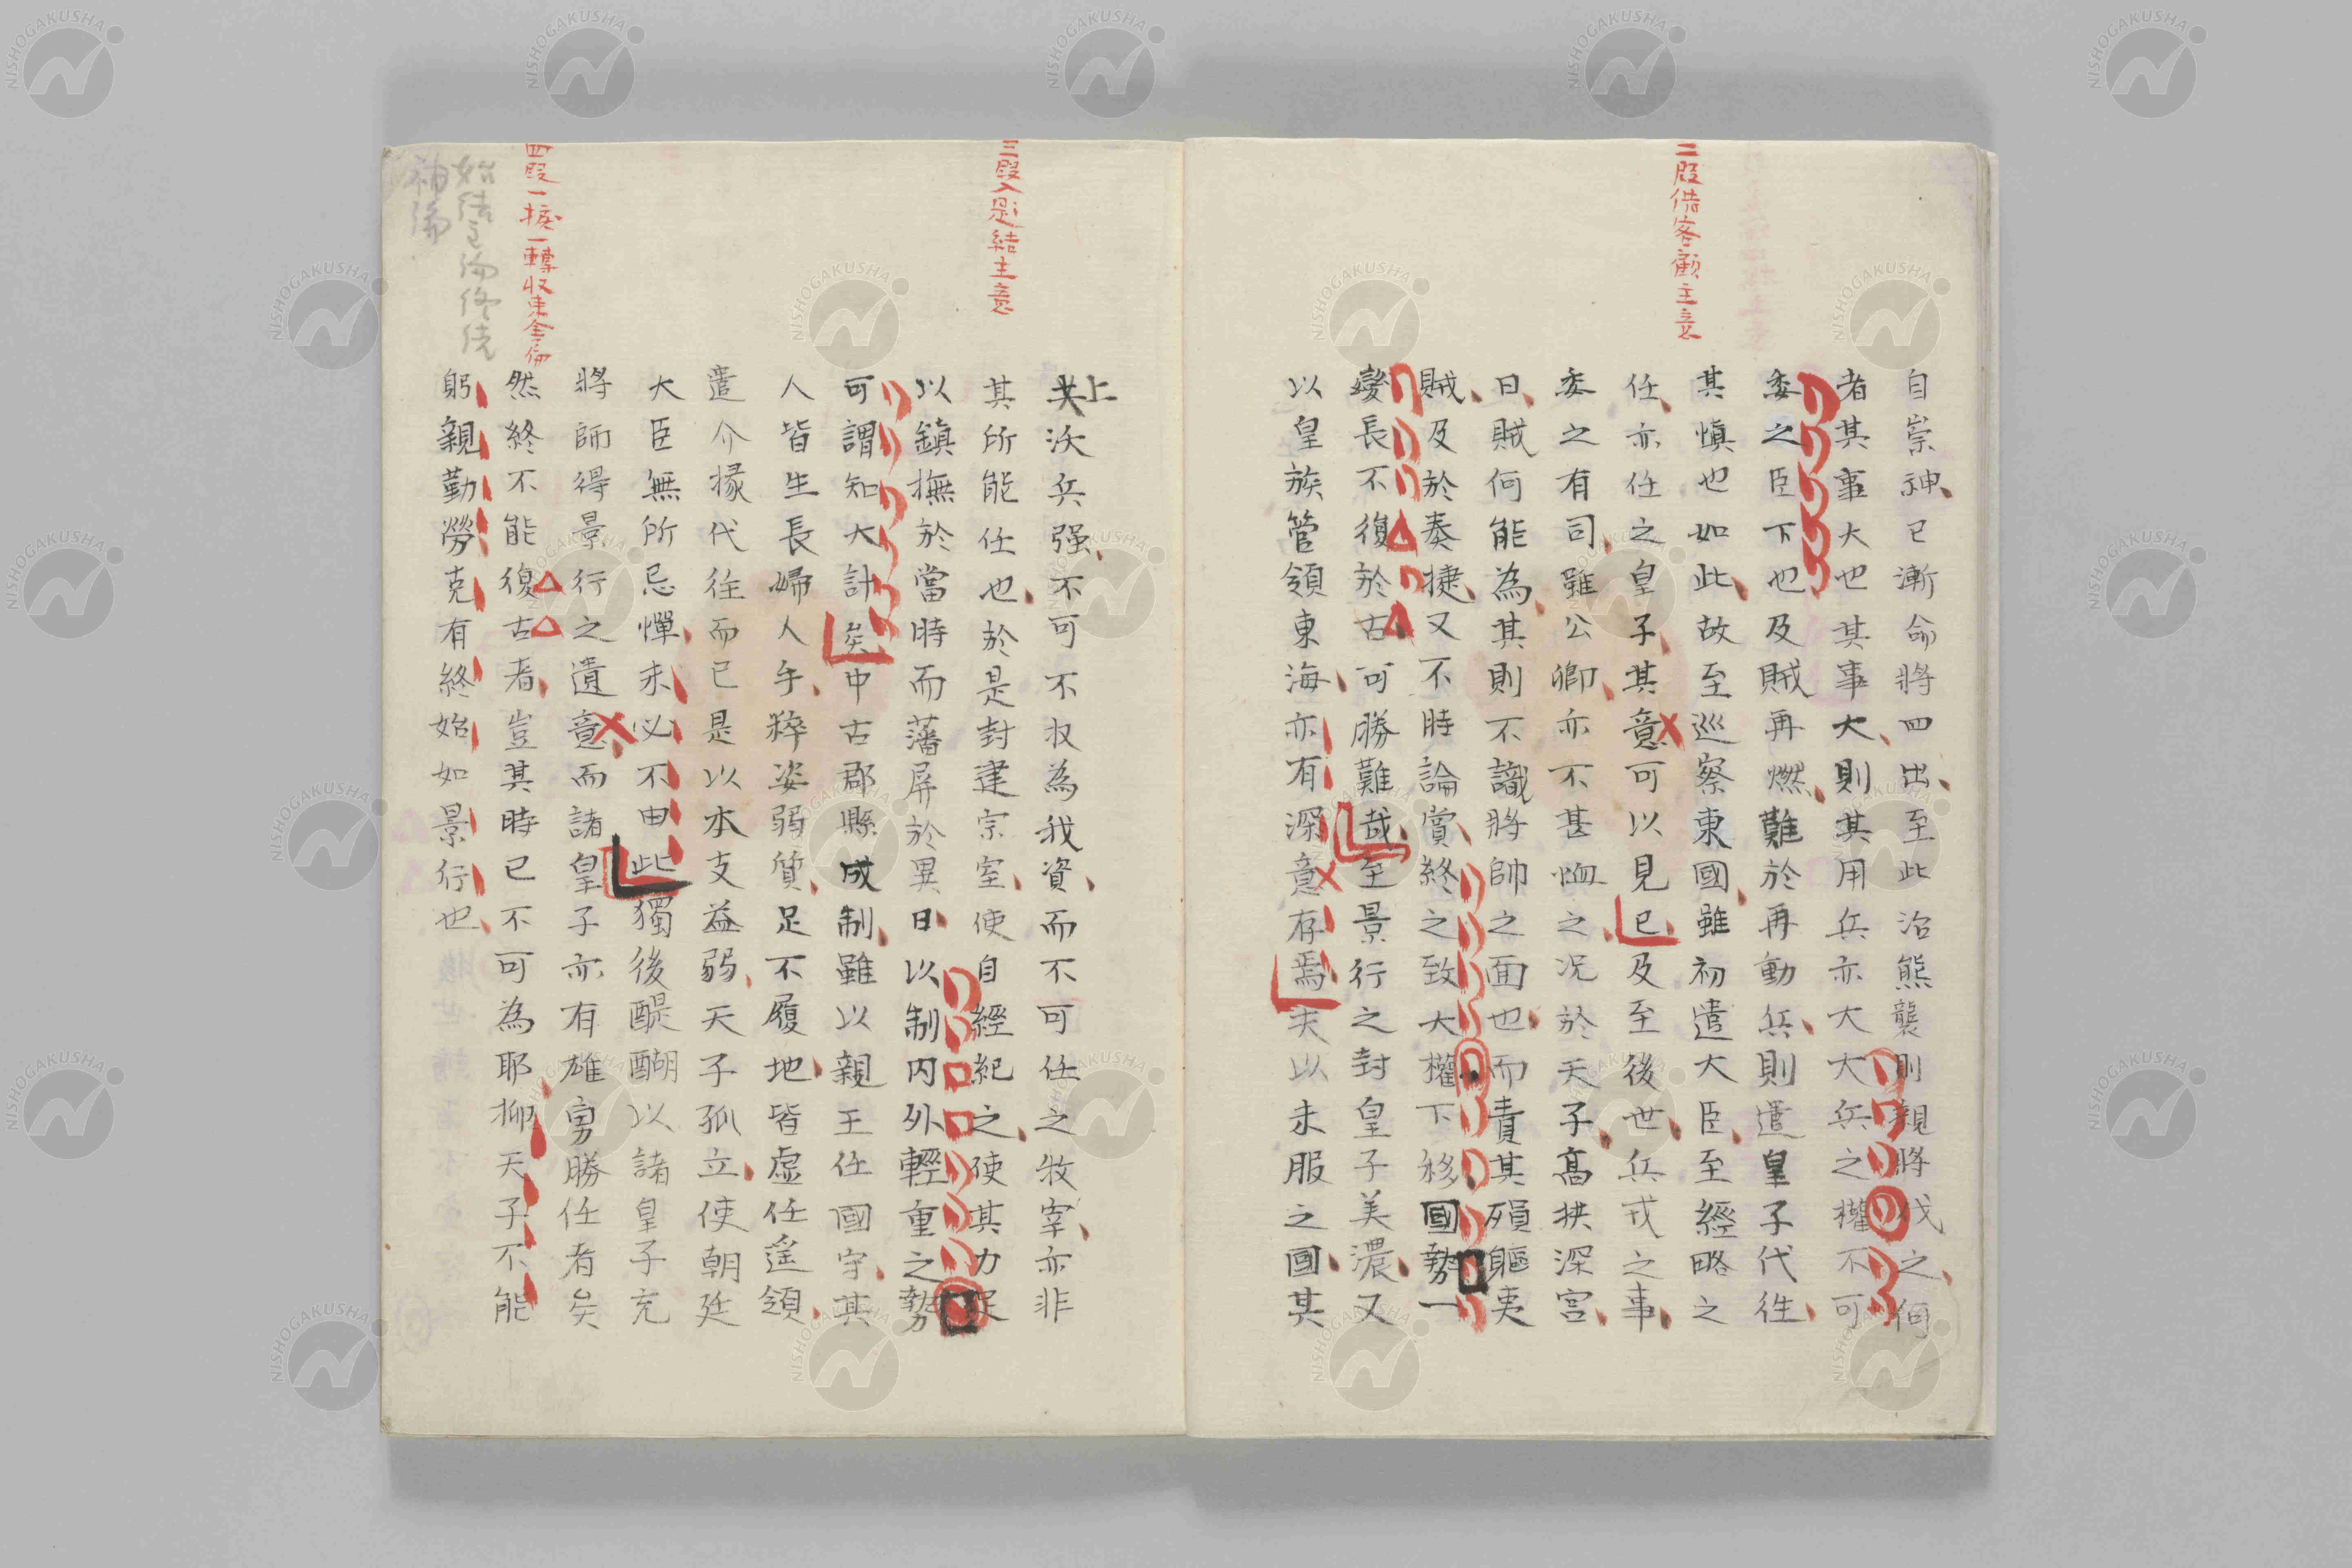 二股借客顧主意
自崇神已漸命將四出至此治熊襲則親將伐之何
者其事大也其事大則其用兵亦大大兵之權不可
委之臣下也及賊再燃難於再動兵則遣皇子代往
其慎也如此故至巡察東國雖初遣大臣至經略之
任亦任之皇子其意可以見已及至後世兵戎之事
委之有司雖公卿亦不甚恤之况於天子高拱深宮
日賊何能為其則不識將帥之面也而責其殞軀夷
賊及於奏捷又不時論賞終之致大權下移國勢一
變長不復於古可勝難哉至景行之封皇子美濃又
以皇族管領東海亦有深意存焉夫以未服之國其
三股入題結主意
上
夫沃兵强不可不収為我資而不可任之牧宰亦非
其所能任也於是封建宗室使自經紀之使其力足
以鎮撫於當時而藩屏於異日以制内外輕重之勢
可謂知大計矣中古郡縣成制雖以親王任國宇其
人皆生長婦人手粹姿弱質足不履地皆虛任遥領
遣介掾代往而已是以本支益弱天子孤立使朝廷
大臣無所忌憚未必不由此獨後醍醐以諸皇子充
將師得景行之遺意而諸皇子亦有雄勇勝任者矣
四股一挨一轉収束全論
然終不能復古者豈其時已不可為耶抑天子不能
躬親勤勞克有終始如景行也
NISHOGAKUSHA